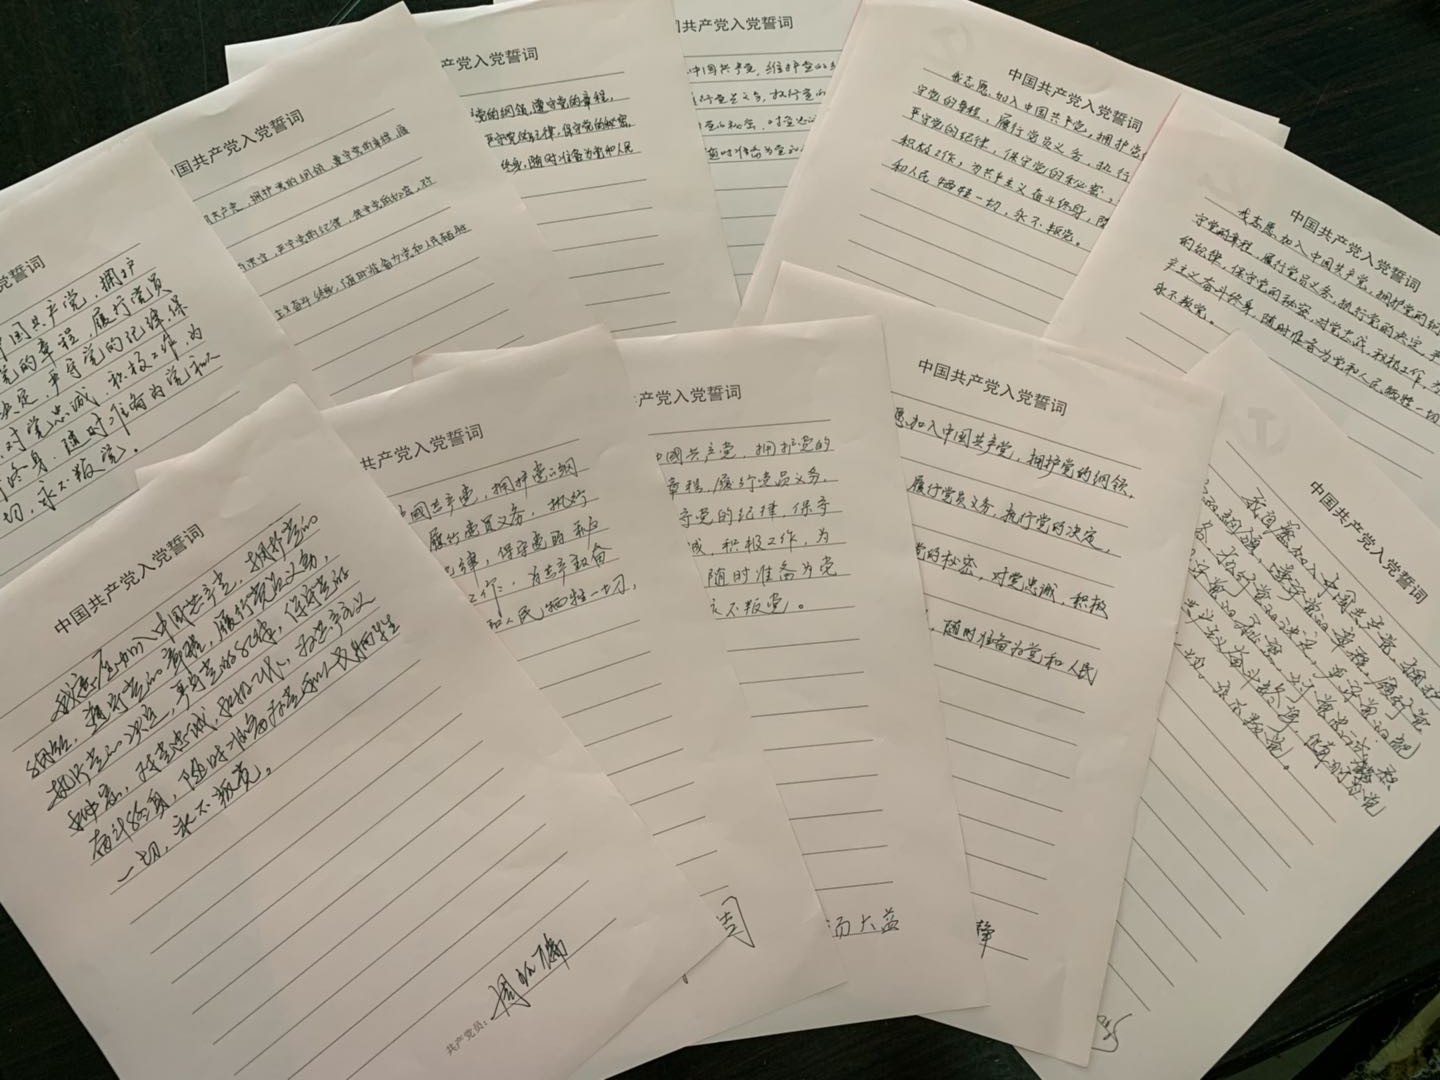 党誓词
中国共产党，拥护
党的章程，履行党员
决定，严守党的纪律，保
对党忠诚，积极工作，为
终身，随时准备为党和
切，永不叛党。
国共产党入党誓词
共产党，拥护党的纲领，遵守党的章程，履
严守党的纪律，保守党的秘密，对
主义奋斗终身，随时准备为党和人民牺牲
产党入党誓词
党的纲领，遵守党的章程，
严守党的纪律，保守党的秘密，
终身，随时准备为党和人民
国共产党入党誓词
中国共产党，维护党的
行党员义务，执行党的
随时准备为党和
中国共产党入党誓词
我志愿加入中国共产党，拥护党
守党的章程，履行党员义务，执行
严守党的纪律，保守党的秘密，
积极工作，为共产主义奋斗终身，随
和人民牺牲一切，永不叛党。
中国共产党入党誓词
我志愿加入中国共产党，拥护党的纲
守党的章程，履行党员义务，执行党的决定，严
的纪律，保守党的秘密，对党忠诚，积极工作，为
产主义奋斗终身，随时准备为党和人民牺牲一切
永不叛党。
中国共产党入党誓词
我志愿加入中国共产党，拥护党的
纲领，遵守党的章程，履行党员义务，
执行党的决定，严守党的纪律，保守党的
秘密，对党忠诚，积极工作，为共产主义
奋斗终身，随时准备为党和人民牺牲
一切，永不叛党。
共产党员：
共产党入党誓词
中國共产党，拥护党的纲
履行党员义务，执行
纪律，保守党的秘
工作，为共产
和人民牺牲一切，
司
产党入党誓词
中國共产党，拥护党的
章程，履行党员义务，
守党的纪律，保守
诚，积极工作，为
随时准备为党
永不叛党。
汤大益
中国共产党入党誓词
愿加入中国共产党，拥护党的纲领，
履行党员义务，执行党的决定，
党的秘密，对党忠诚，积极
随时准备为党和人民
中国共产党入党誓词
我自愿加入中国共产党，拥护
的纲领，遵守党的章程，履行党
务，执行党的决定，严守党的纪
守党的秘密，对党忠诚，积
共产主义奋斗终身，随时为党
一切，永不叛党。